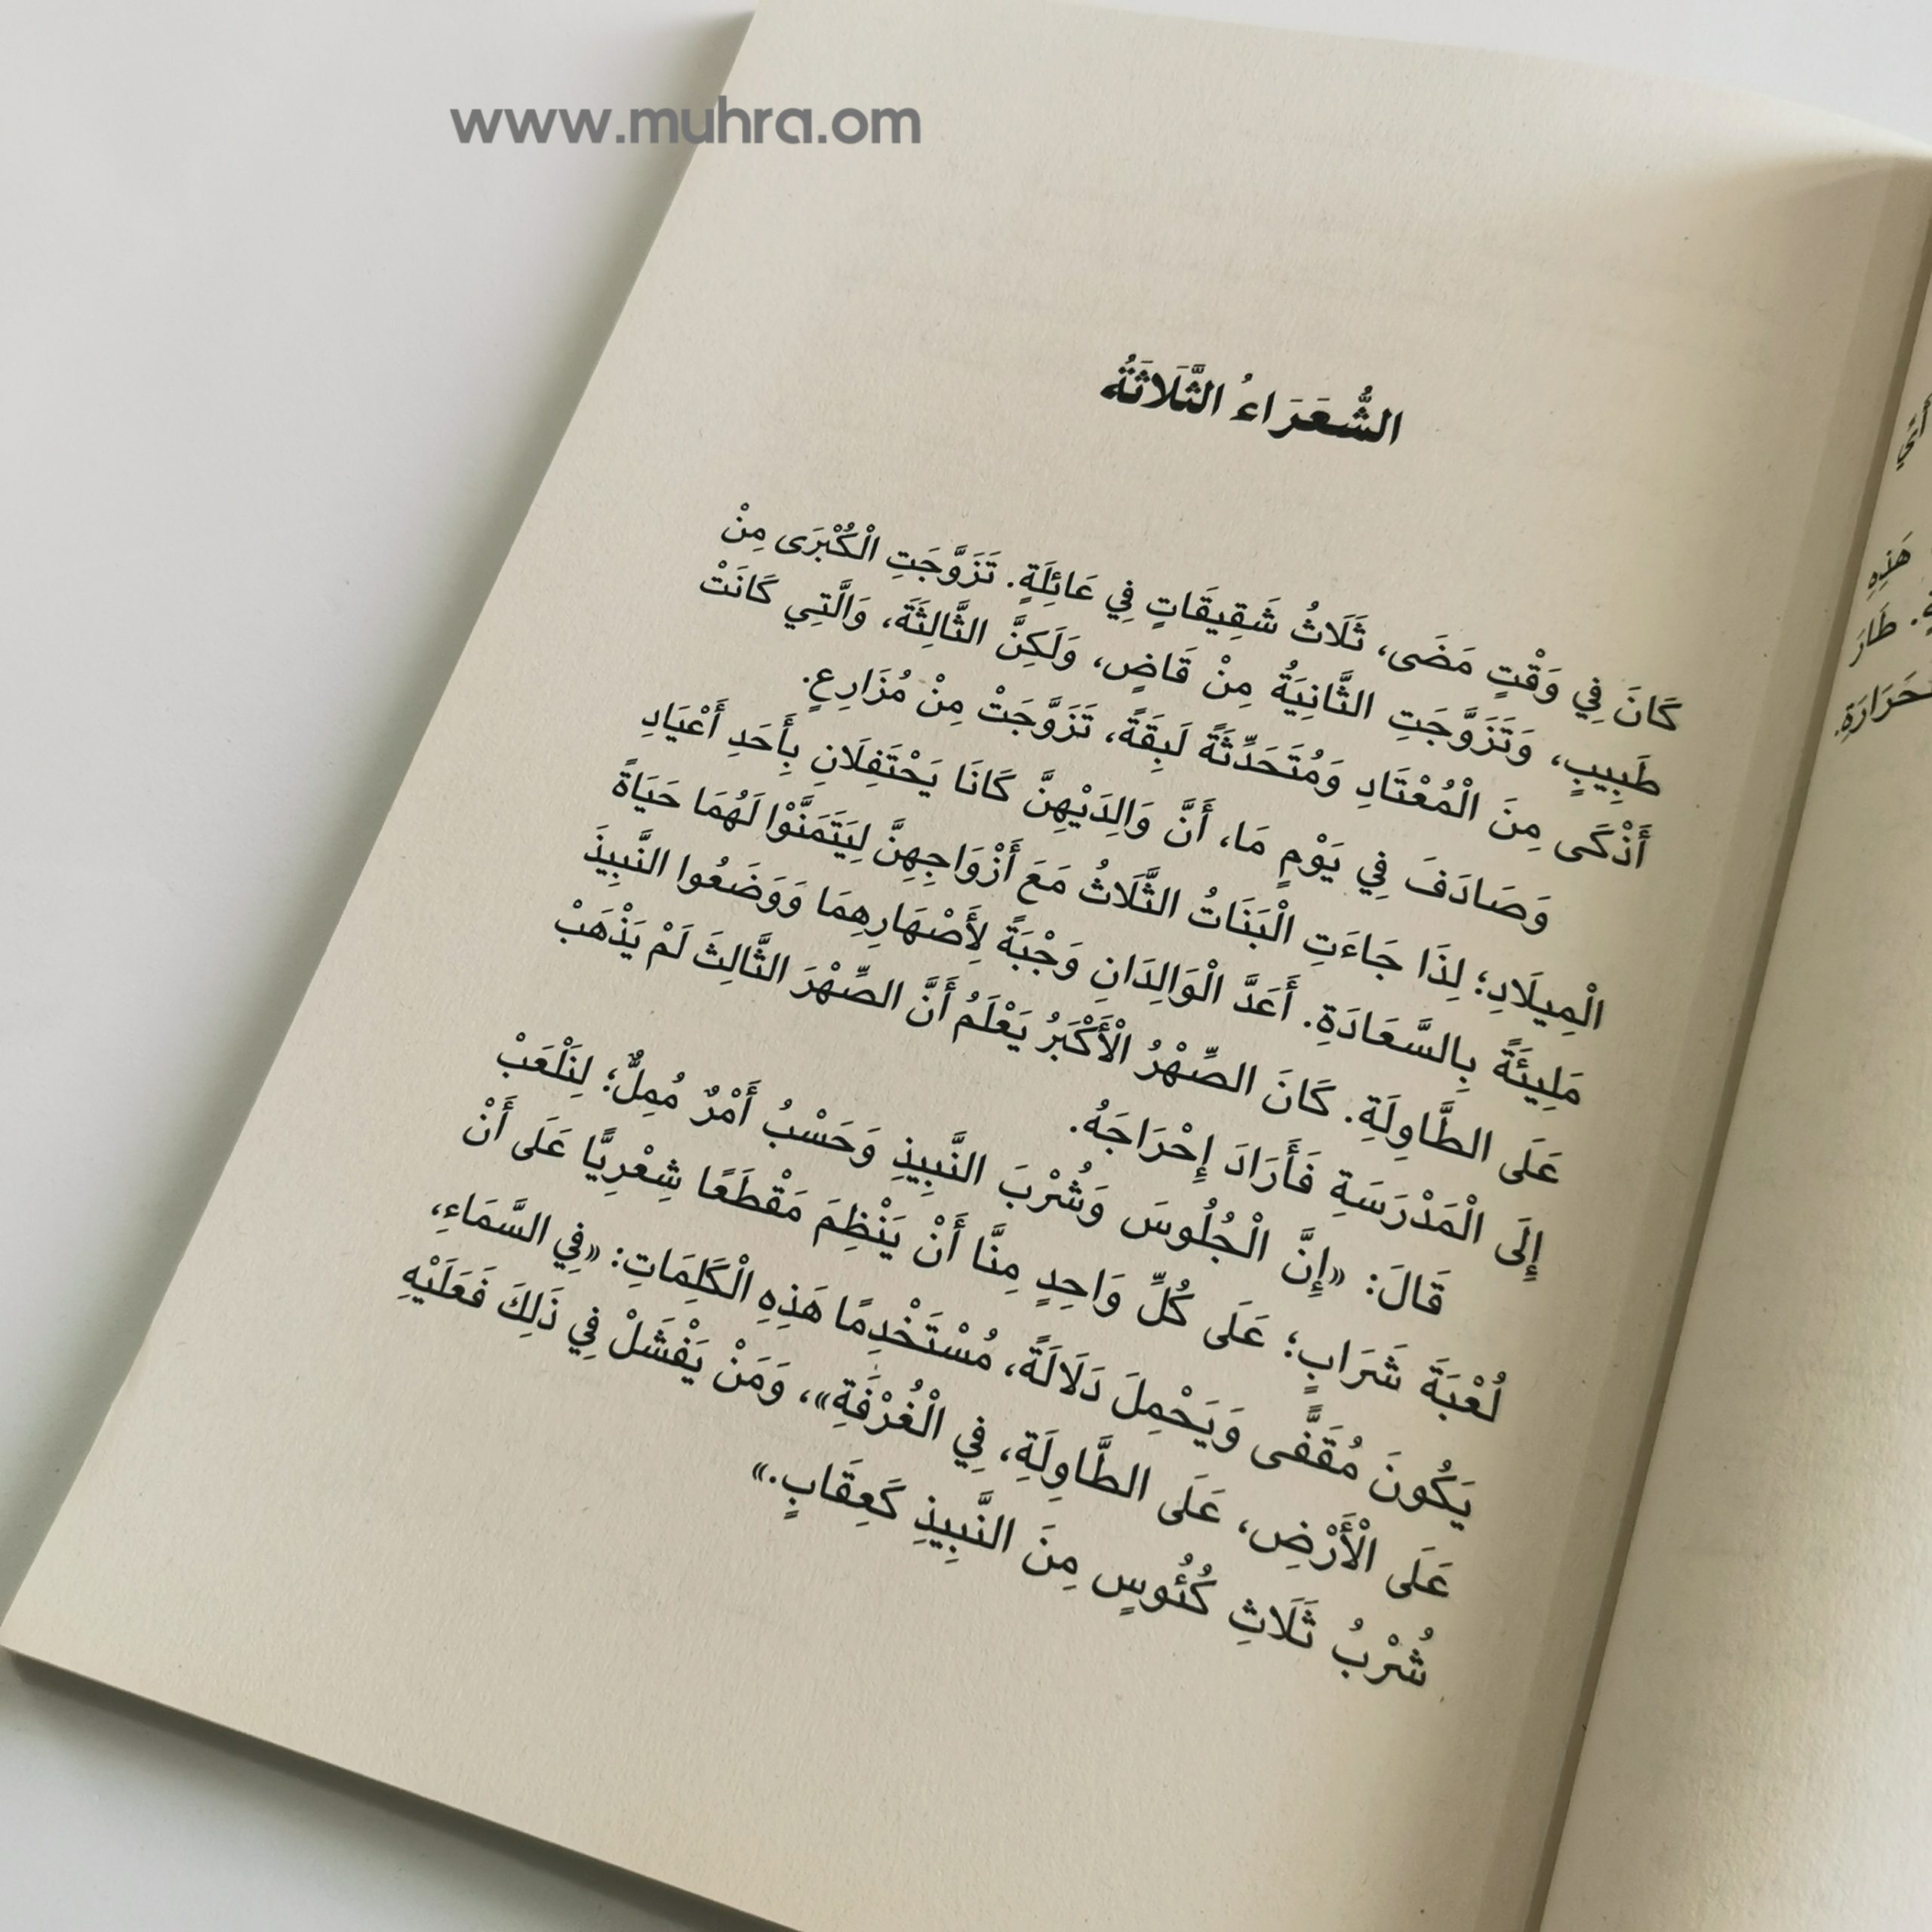 www.muhra.om
الشُّعَرَاءُ الثَّلَاثَةُ
كَانَ فِي وَقْتٍ مَضَى، ثَلَاثُ شَقِيقَاتٍ فِي عَائِلَةٍ. تَزَوَّجَتِ الْكُبْرَى مِنْ
طَبِيبٍ، وَتَزَوَّجَتِ الثَّانِيَةُ مِنْ قَاضٍ، وَلَكِنَّ الثَّالِثَةَ، وَالَّتِي كَانَتْ
أَذْكَى مِنَ الْمُعْتَادِ وَمُتَحَدِّثَةً لَبِقَةً، تَزَوَّجَتْ مِنْ مُزَارِعٍ.
وَصَادَفَ فِي يَوْمٍ مَا، أَنَّ وَالِدَيْهِنَّ كَانَا يَحْتَفِلَانِ بِأَحَدِ أَعْيَادِ
الْمِيلَادِ؛ لِذَا جَاءَتِ الْبَنَاتُ الثَّلَاثُ مَعَ أَزْوَاجِهِنَّ لِيَتَمَنَّوْا لَهُمَا حَيَاةً
مَلِيئَةً بِالسَّعَادَةِ. أَعَدَّ الْوَالِدَانِ وَجْبَةً لِأَصْهَارِهِمَا وَوَضَعُوا النَّبِيذَ
عَلَى الطَّاوِلَةِ. كَانَ الصِّهْرُ الْأَكْبَرُ يَعْلَمُ أَنَّ الصِّهْرَ الثَّالِثَ لَمْ يَذْهَبْ
إِلَى الْمَدْرَسَةِ فَأَرَادَ إِحْرَاجَهُ.
قَالَ: «إِنَّ الْجُلُوسَ وَشُرْبَ النَّبِيذِ وَحَسْبُ أَمْرٌ مُمِلٌّ؛ لِنَلْعَبْ
لُعْبَةَ شَرَابٍ؛ عَلَى كُلِّ وَاحِدٍ مِنَّا أَنْ يَنْظِمَ مَقْطَعًا شِعْرِيًّا عَلَى أَنْ
يَكُونَ مُقَفًّى وَيَحْمِلَ دَلَالَةً، مُسْتَخْدِمًا هَذِهِ الْكَلِمَاتِ: «فِي السَّمَاءِ،
عَلَى الْأَرْضِ، عَلَى الطَّاوِلَةِ، فِي الْغُرْفَةِ»، وَمَنْ يَفْشَلْ فِي ذَلِكَ فَعَلَيْهِ
شُرْبُ ثَلَاثِ كُئُوسٍ مِنَ النَّبِيذِ كَعِقَابٍ.»
هَذِهِ
طَارَ